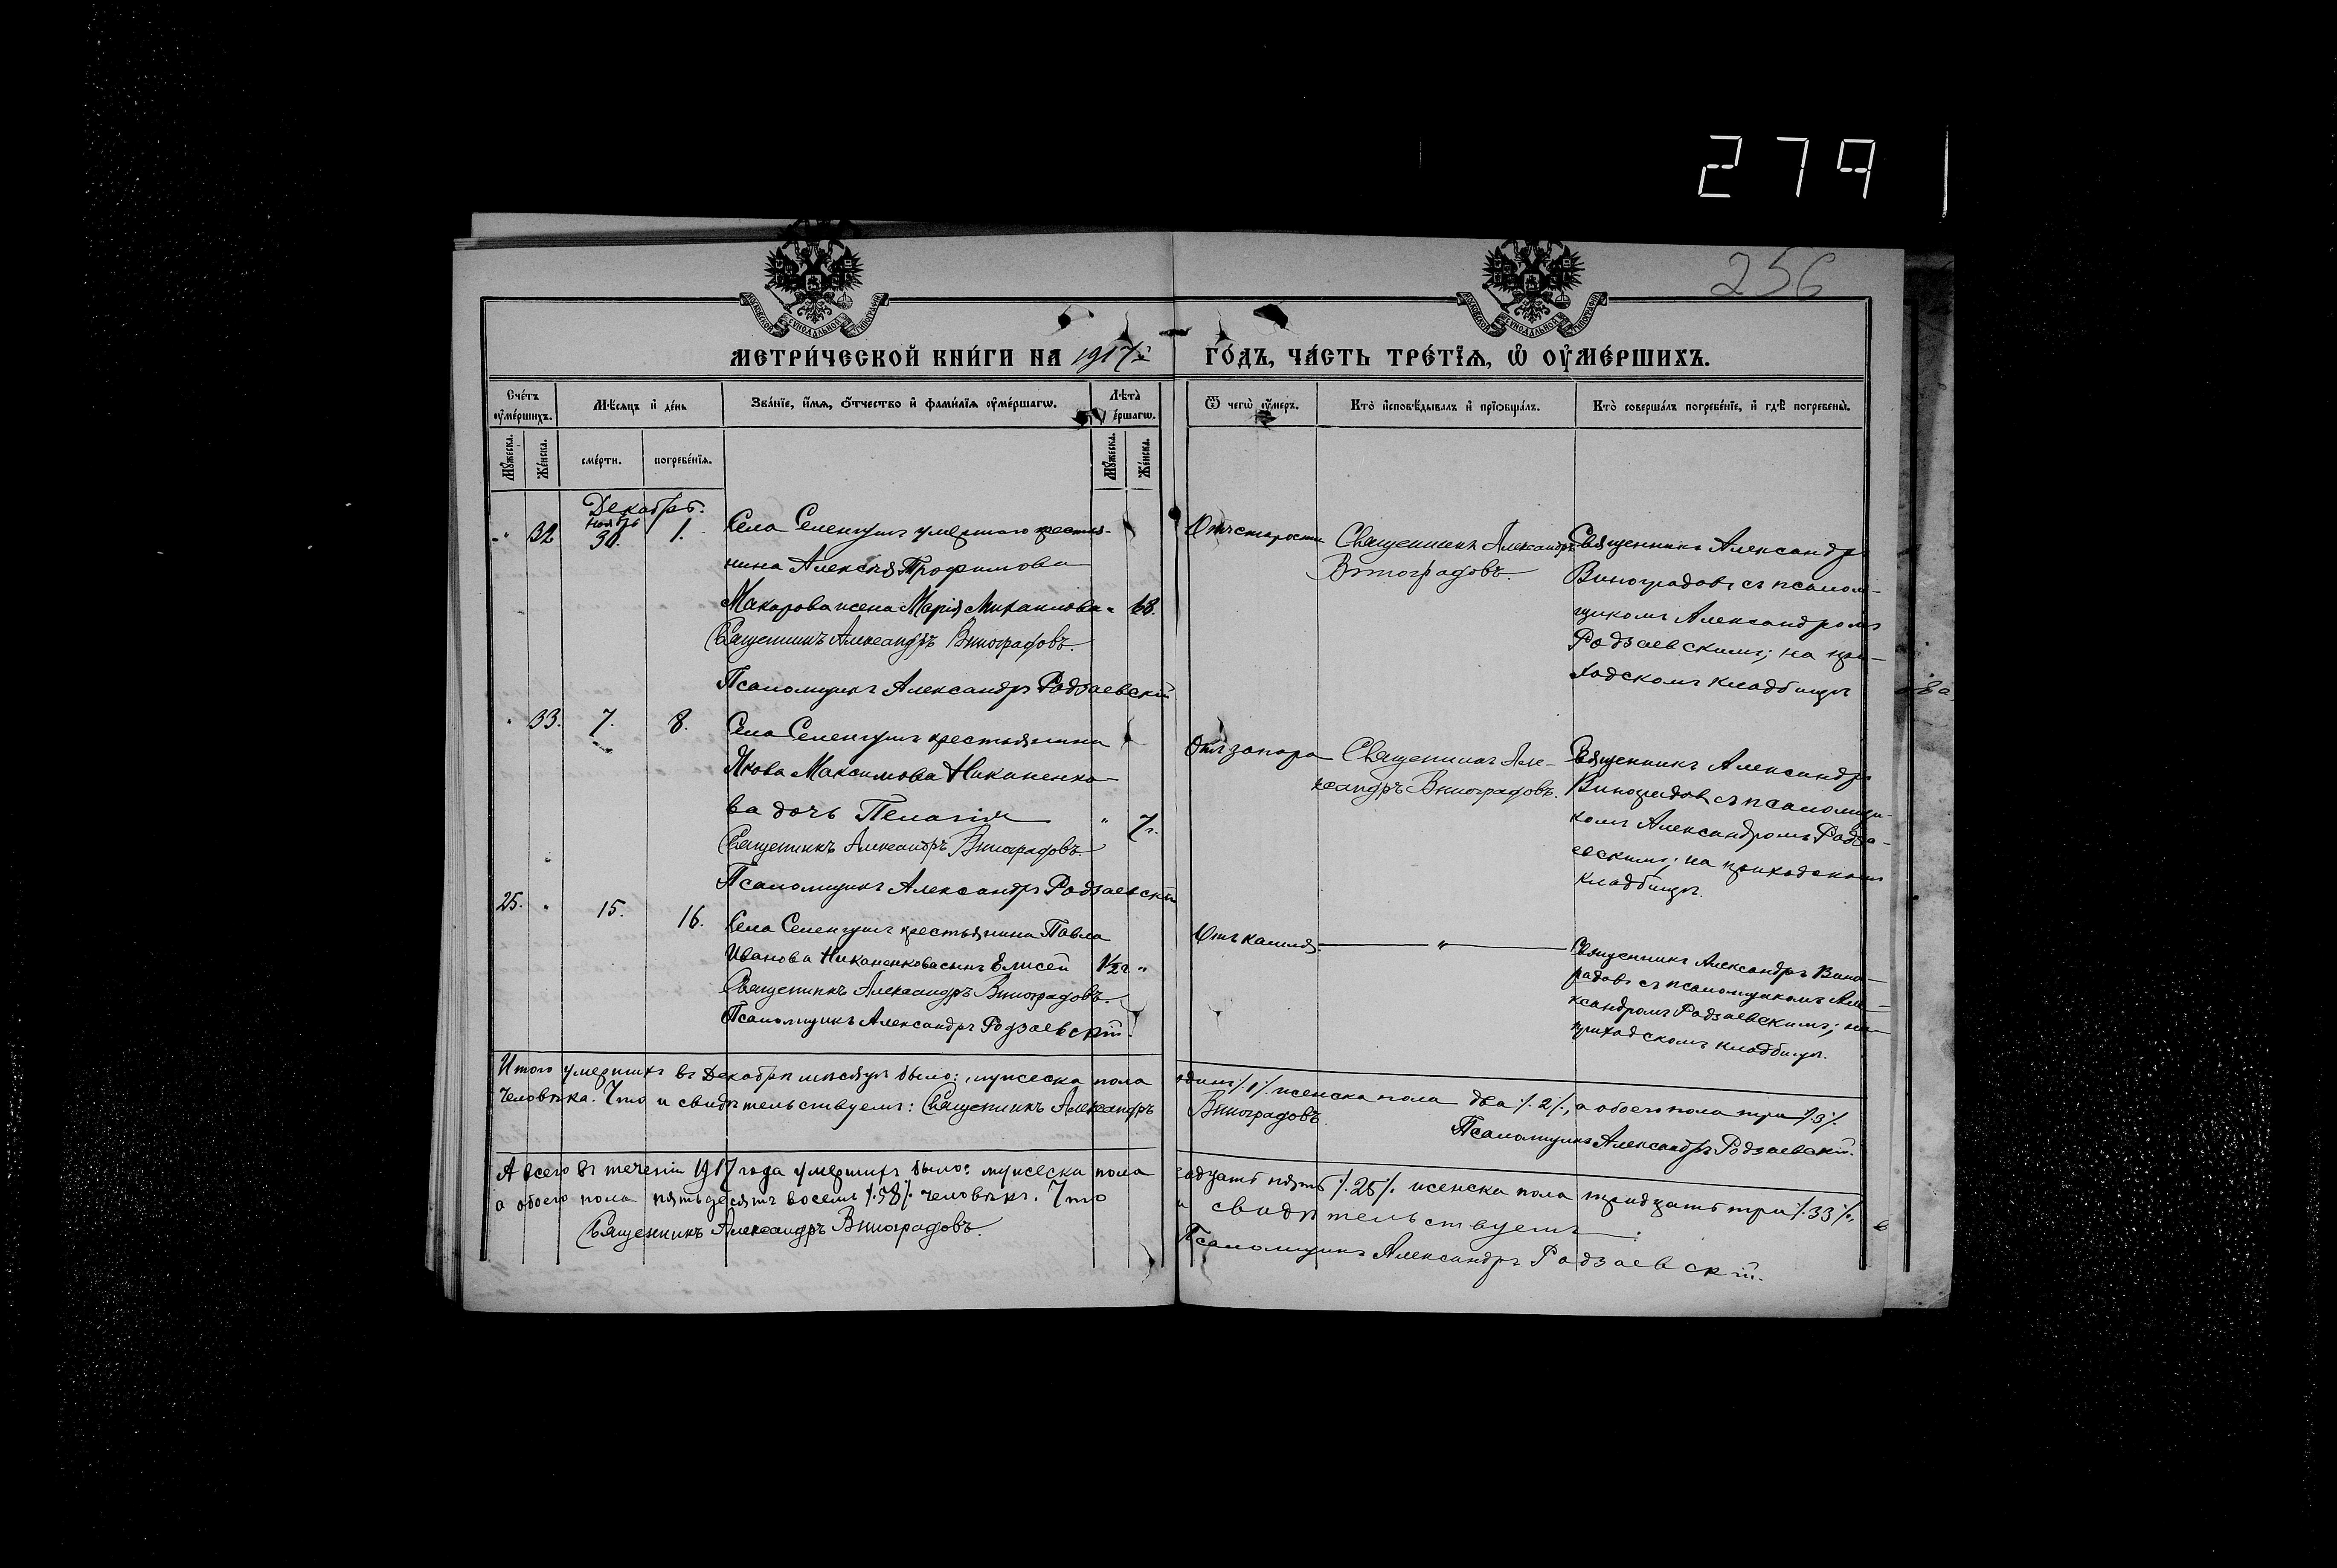 279
256
МОСКОВСКОЙ СѴНОДАЛЬНОЙ ТИПОГРАФІИ
МОСКОВСКОЙ СѴНОДАЛЬНОЙ ТИПОГРАФІИ
МЕТРИ́ЧЕСКОЙ КНИ́ГИ НА 1917й ГО́ДЪ, ЧА́СТЬ ТРЕ́ТЇѦ, Ѡ҆ ОУ҆МЕ́РШИХЪ.
Сче́тъ оу҆ме́ршихъ.
Мѣ́сѧцъ и҆ де́нь
Зва́нїе, и҆́мѧ, ѻ҆́тчество и҆ фами́лїѧ оу҆ме́ршагѡ.
Лѣ́та
е́ршагѡ.
Ѿ чегѡ̀ оу҆́меръ.
Кто̀ и҆сповѣ́дывалъ и҆ прїѡбща́лъ.
Кто̀ соверша́лъ погребе́нїе, и҆ гдѣ̀ погребены̀.
Мꙋ́жеска.
Же́нска.
сме́рти.
погребе́нїѧ.
Мꙋ́жеска.
Же́нска.
Декабрь.
ноябрь
" 32 30. 1. Села Селенгушъ умершаго крестья-
нина Алексѣя Трофимова
Макарова жена Марія Михаилова " 68.
Священникъ Александръ Виноградовъ.
Псаломщикъ Александръ Радзаевскій
Отъ старости
Священникъ Александръ
Виноградовъ.
Священникъ Александръ
Виноградовъ съ псалом-
щикомъ Александромъ
Радзаевскимъ; на при-
ходскомъ кладбищѣ
" 33. 7. 8. Села Селенгушъ крестьянина
Якова Максимова Никаненко-
ва дочь Пелагія " 7 г.
Священникъ Александръ Виноградовъ.
Псаломщикъ Александръ Радзаевскій
Отъ запора
Священникъ Але-
ксандръ Виноградовъ.
Священникъ Александръ
Виноградовъ съ псаломщи-
комъ Александромъ Радза-
евскимъ; на приходскомъ
кладбищѣ.
25. " 15. 16. Села Селенгушъ крестьянина Павла
Иванова Никаненкова сынъ Елисей 1½ г. "
Священникъ Александръ Виноградовъ.
Псаломщикъ Александръ Радзаевскій.
Отъ кашля. "
Священникъ Александръ Вино-
градовъ съ псаломщикомъ Але-
ксандромъ Радзаевскимъ; на
приходскомъ кладбищѣ.
Итого умершихъ въ Декабрѣ мѣсяцѣ было: мужеска пола одинъ /.1/. женска пола два /.2/., а обоего пола три /.3/.
человѣка. Что и свидѣтельствуемъ: Священникъ Александръ Виноградовъ.
Псаломщикъ Александръ Радзаевскій.
А всего въ теченіи 1917 года умершихъ было: мужеска пола двадцать пять /.25/. женска пола тридцать три /.33/.,
а обоего пола пятьдесятъ восемь /.58/. человѣкъ. Что и свидѣтельствуемъ:
Священникъ Александръ Виноградовъ.
Псаломщикъ Александръ Радзаевскій.